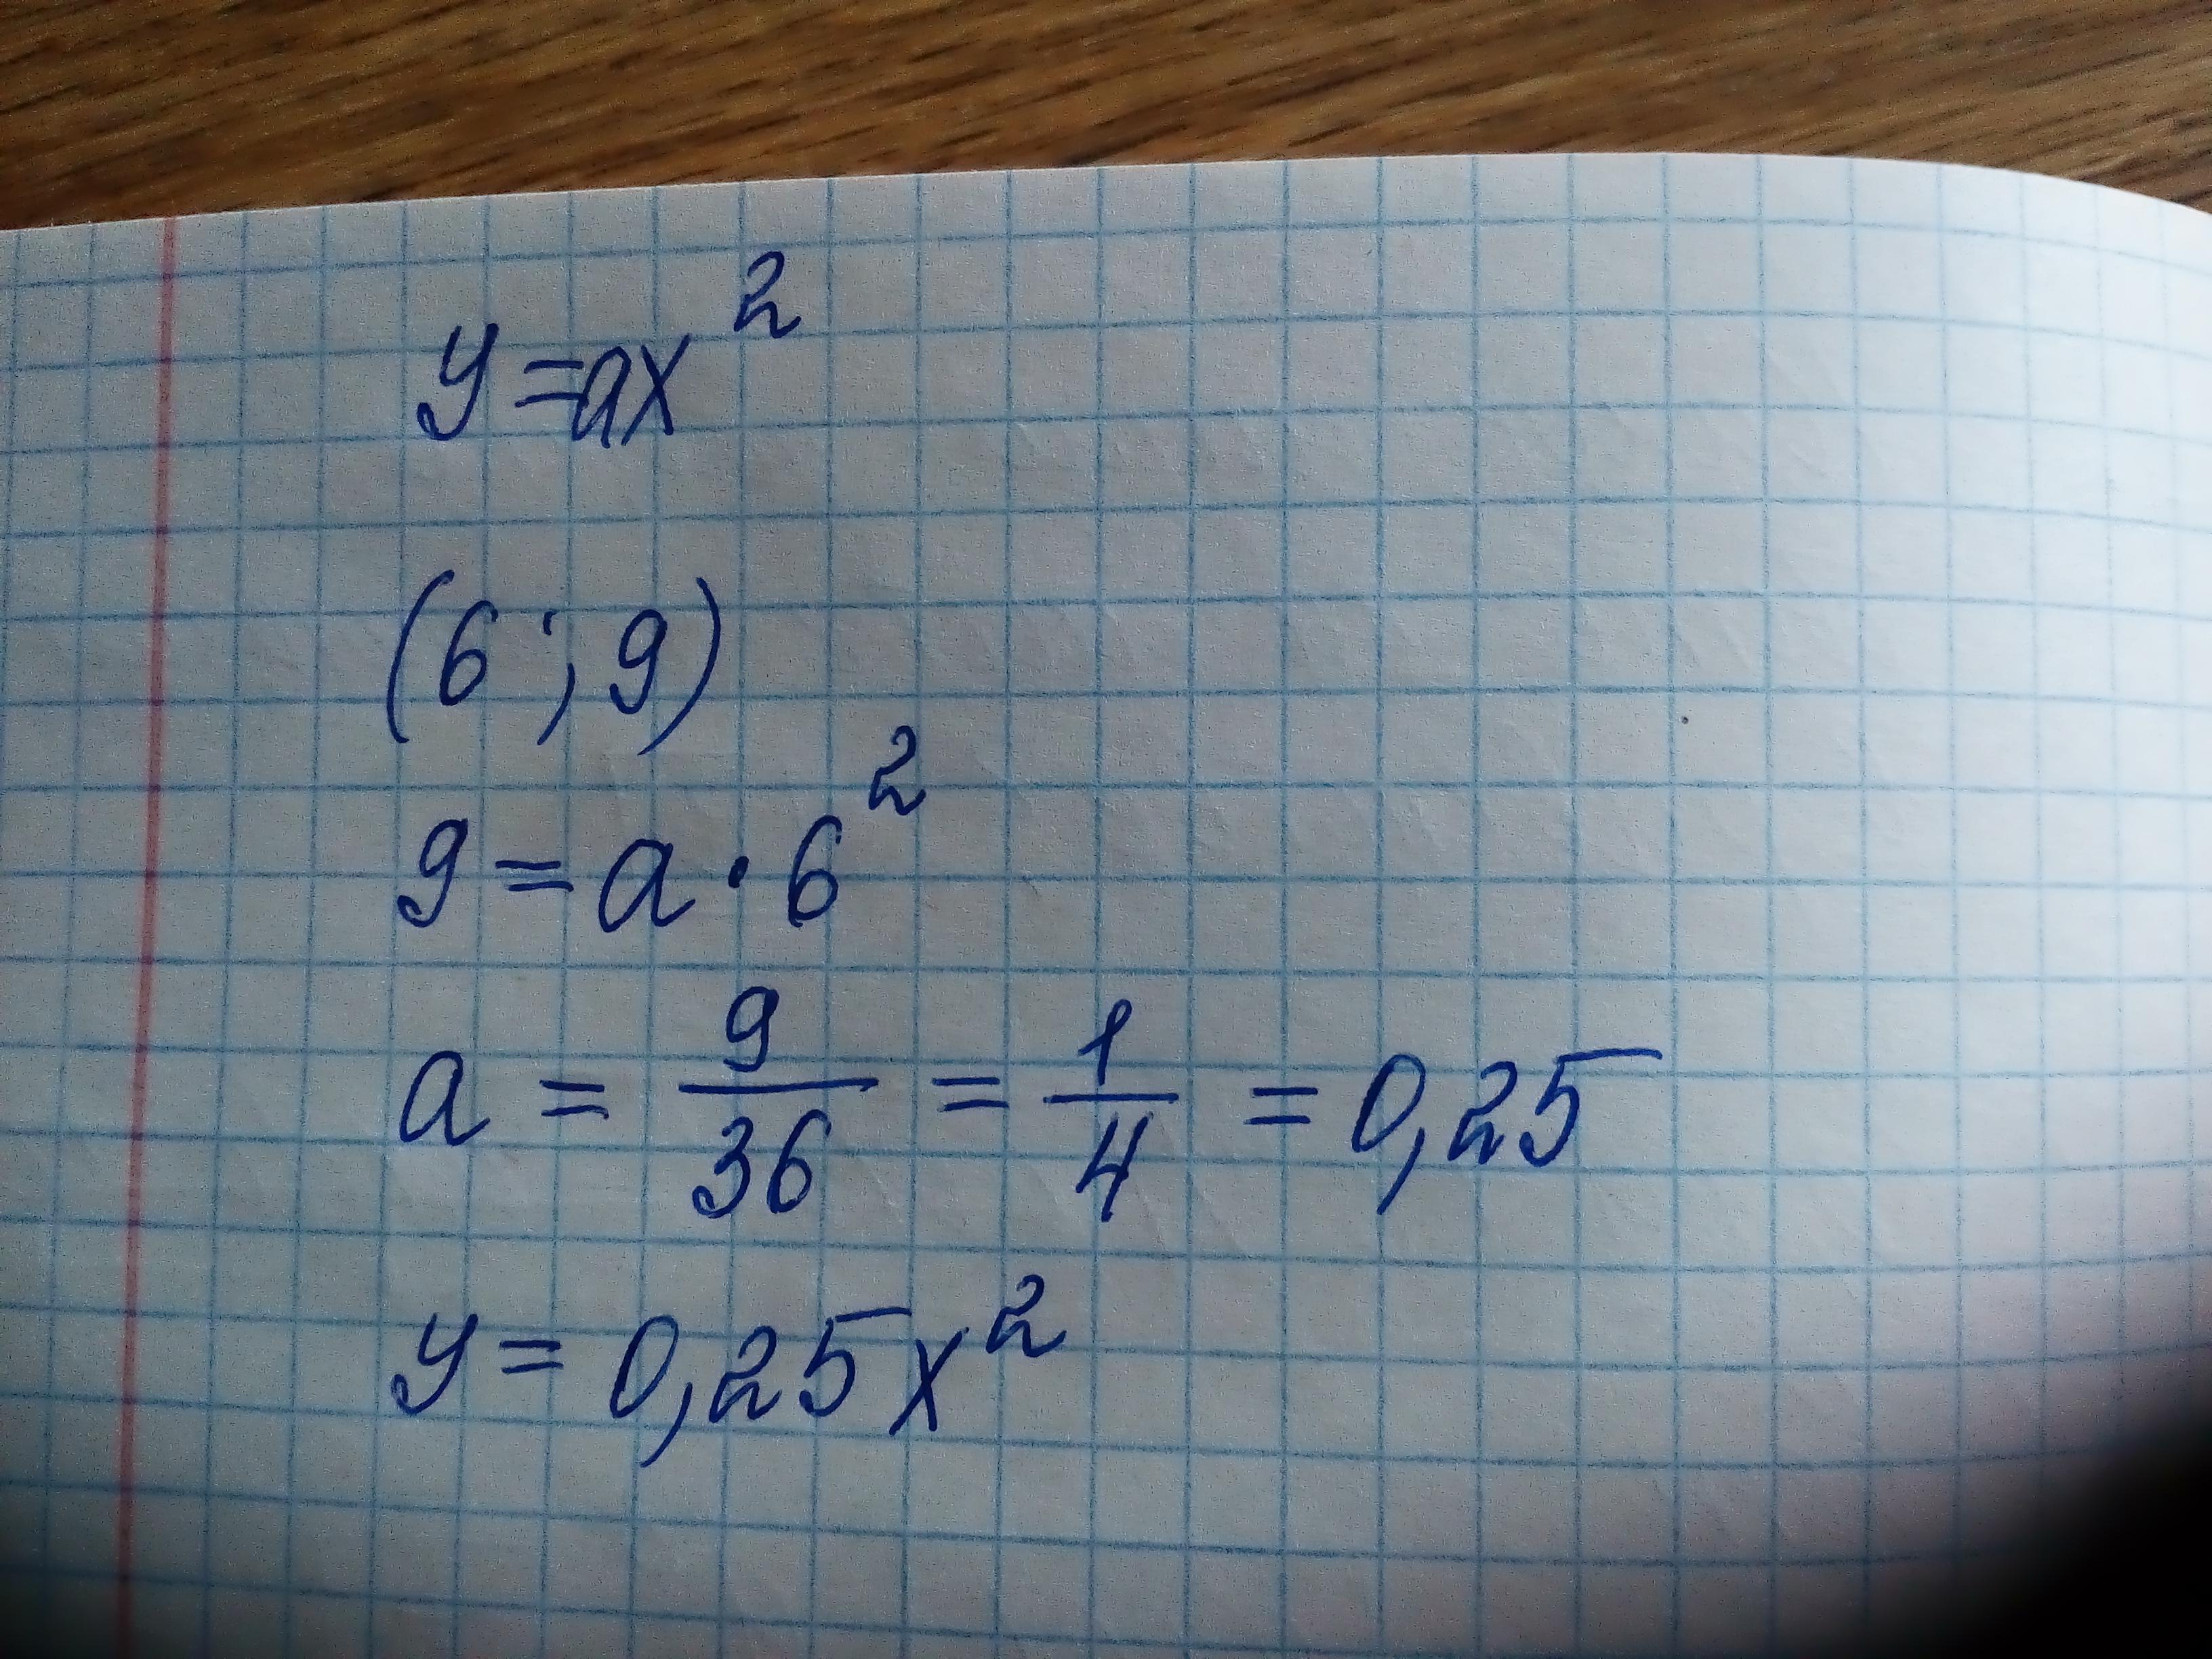 y = ax²
(6 ; 9)
9 = a · 6²
a = 9/36 = 1/4 = 0,25
y = 0,25x²